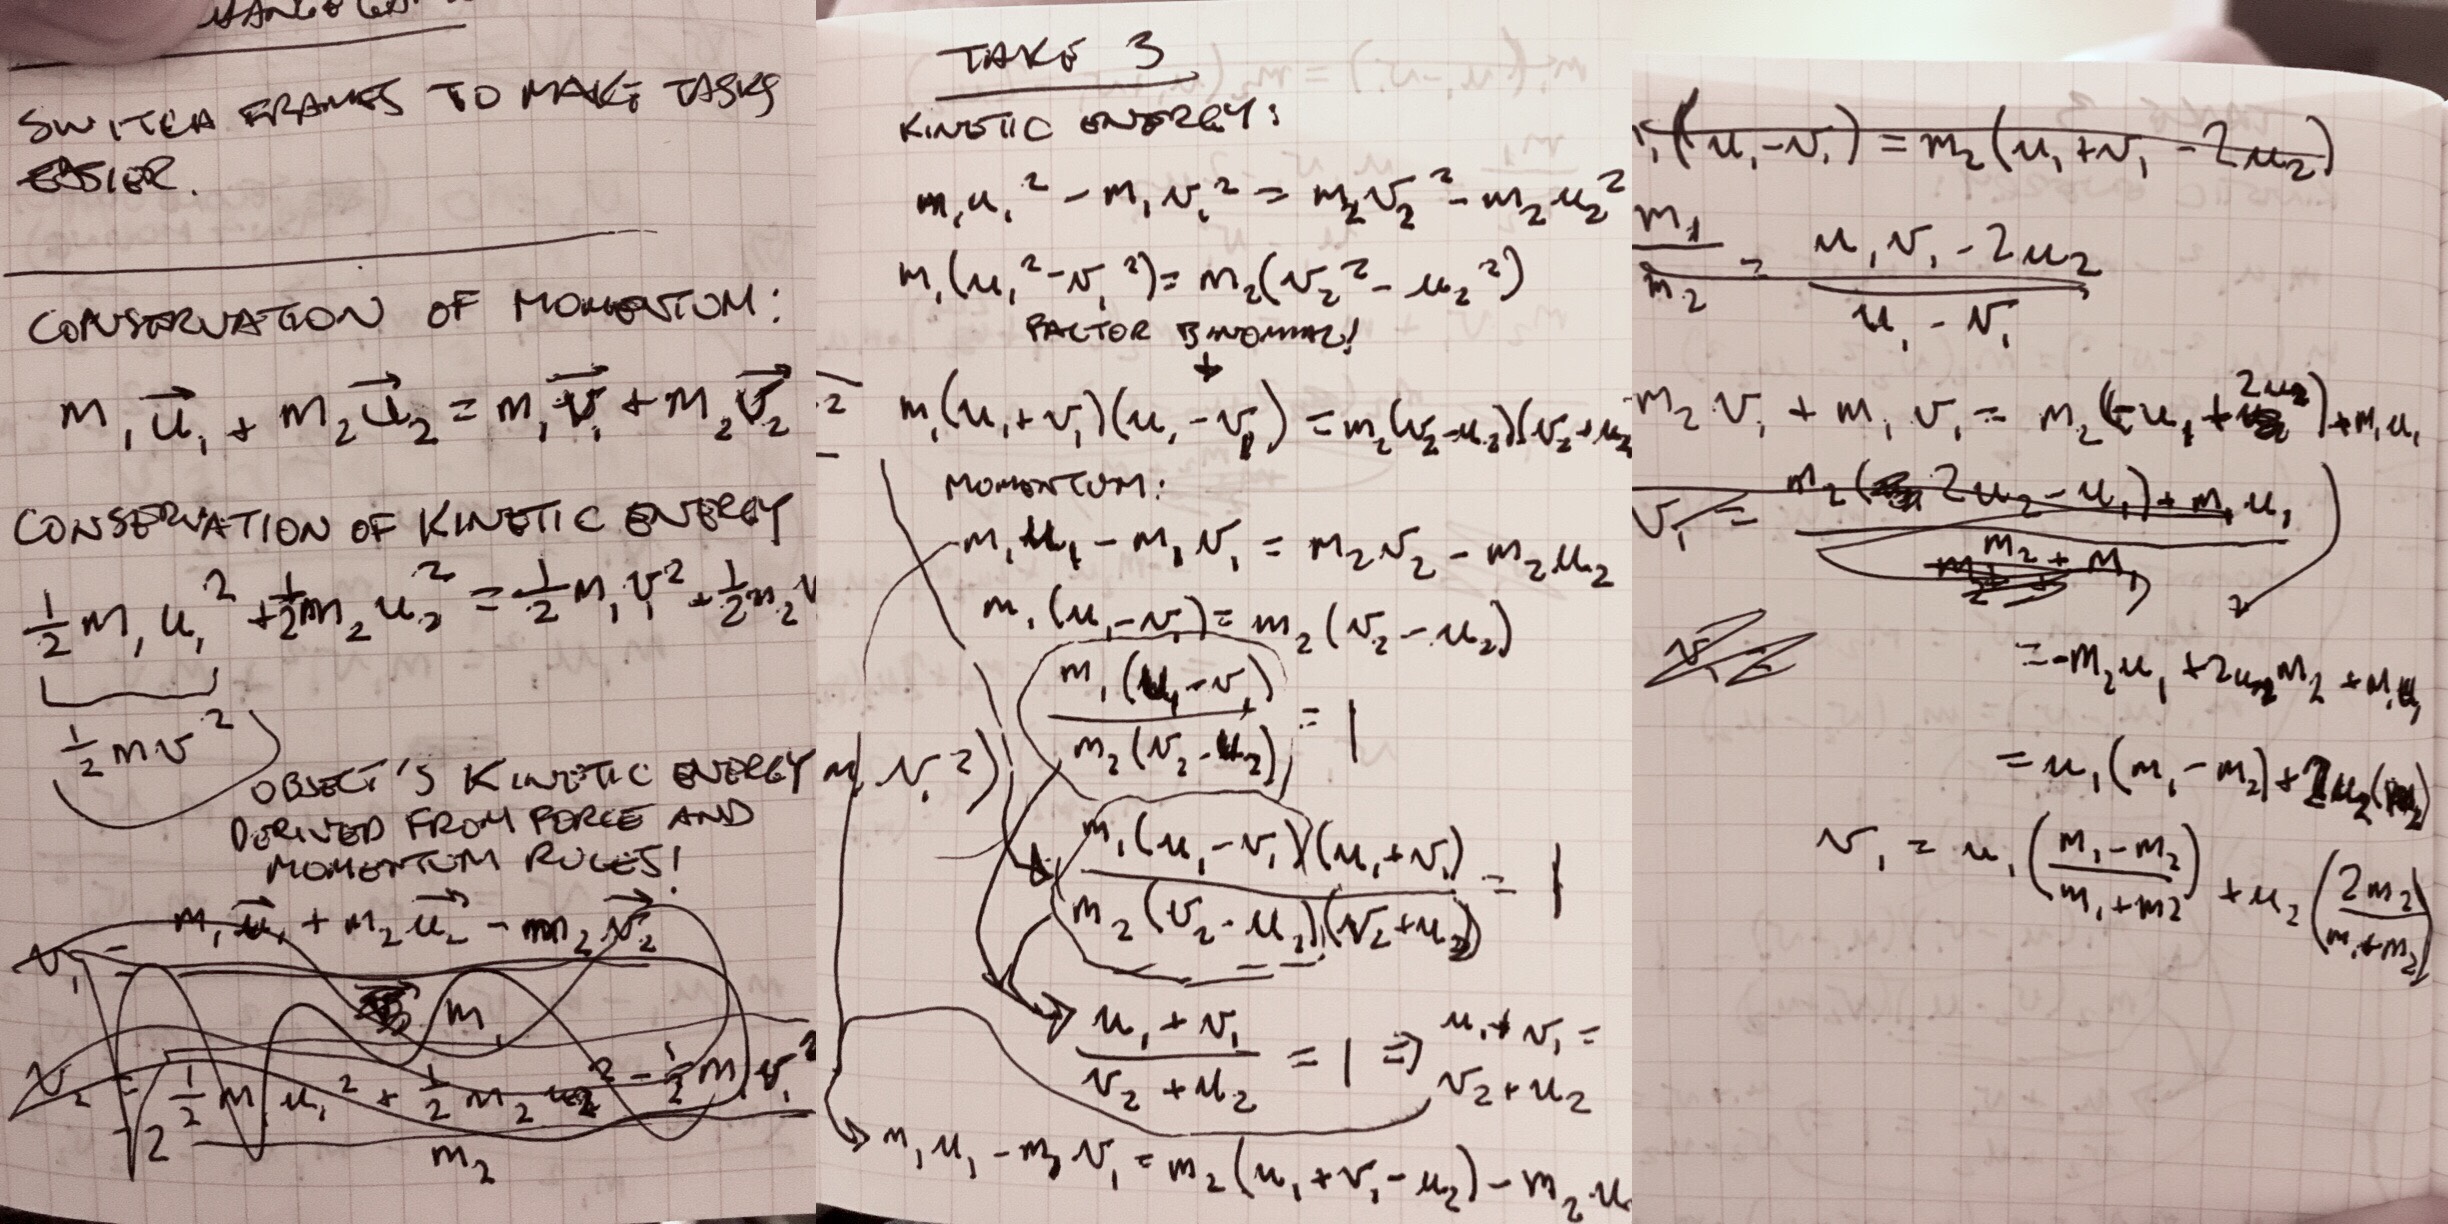 SWITCH FRAMES TO MAKE TASKS
EASIER.
CONSERVATION OF MOMENTUM:
m₁u⃗₁ + m₂u⃗₂ = m₁v⃗₁ + m₂v⃗₂
CONSERVATION OF KINETIC ENERGY
½m₁u₁² + ½m₂u₂² = ½m₁v₁² + ½m₂v
½mv²
OBJECT'S KINETIC ENERGY
DERIVED FROM FORCE AND
MOMENTUM RULES!
v₁ = (m₁u⃗₁ + m₂u⃗₂ - m₂v⃗₂) / m₁
v₂ = 2 (½m₁u₁² + ½m₂u₂² - ½m₁v₁²) / m₂
TAKE 3
KINETIC ENERGY:
m₁u₁² - m₁v₁² = m₂v₂² - m₂u₂²
m₁(u₁² - v₁²) = m₂(v₂² - u₂²)
FACTOR BINOMIAL!
m₁(u₁ + v₁)(u₁ - v₁) = m₂(v₂ - u₂)(v₂ + u₂
MOMENTUM:
m₁u₁ - m₁v₁ = m₂v₂ - m₂u₂
m₁(u₁ - v₁) = m₂(v₂ - u₂)
m₁(u₁ - v₁) / m₂(v₂ - u₂) = 1
m₁v₁²)
m₁(u₁ - v₁)(u₁ + v₁) / m₂(v₂ - u₂)(v₂ + u₂) = 1
(u₁ + v₁) / (v₂ + u₂) = 1 ⇒ u₁ + v₁ =
v₂ + u₂
m₁u₁ - m₁v₁ = m₂(u₁ + v₁ - u₂) - m₂u
(u₁ - v₁) = m₂(u₁ + v₁ - 2u₂)
m₁ / m₂ = (u₁v₁ - 2u₂) / (u₁ - v₁)
m₂v₁ + m₁v₁ = m₂(-u₁ + 2u₂) + m₁u₁
v₁ = (m₂(2u₂ - u₁) + m₁u₁) / (m₂ + m₁)
= -m₂u₁ + 2u₂m₂ + m₁u₁
= u₁(m₁ - m₂) + 2u₂(m₂)
v₁ = u₁((m₁ - m₂) / (m₁ + m₂)) + u₂(2m₂ / (m₁ + m₂))